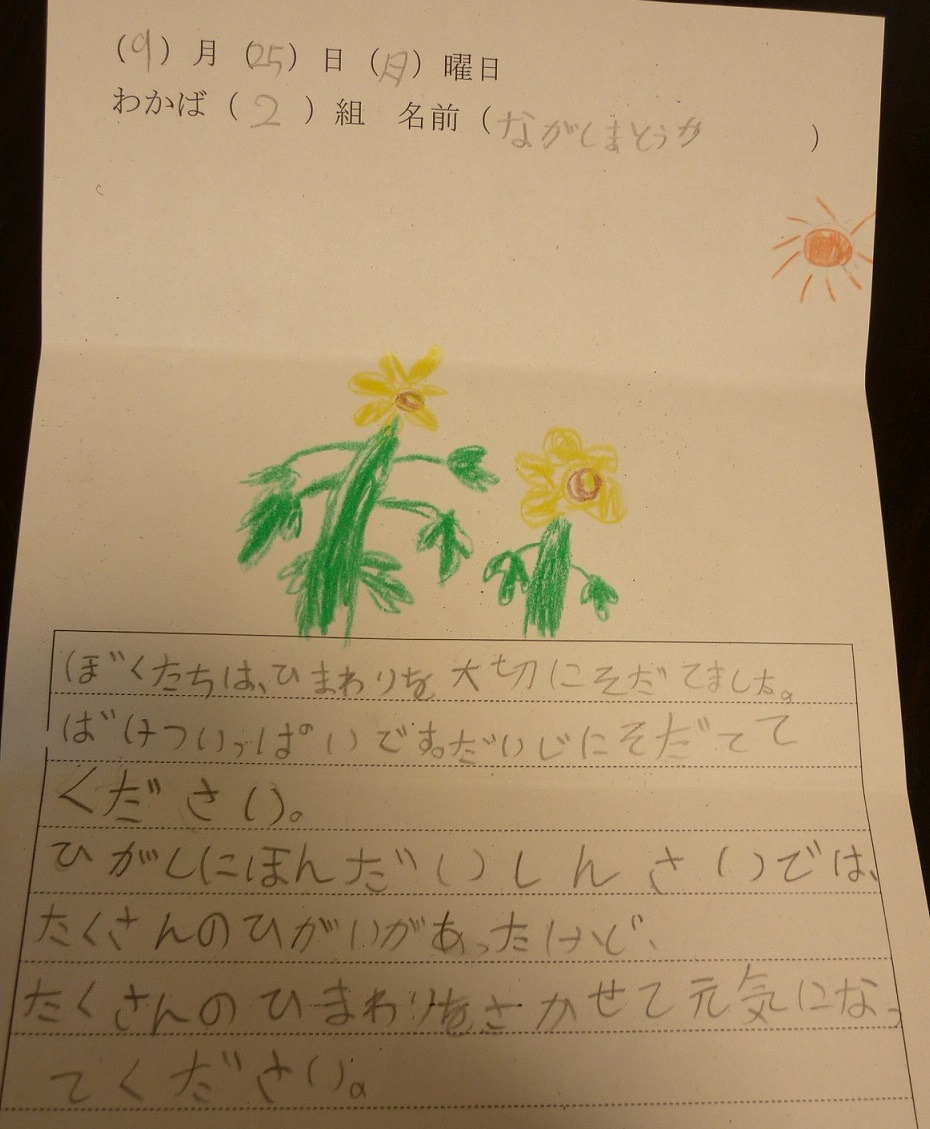 (9)月(25)日(月)曜日
わかば(2)組 名前(ながしまとうか)
ぼくたちは、ひまわりを大切にそだてました。
ばけついっぱいです。だいじにそだてて
ください。
ひがしにほんだいしんさいでは、
たくさんのひがいがあったけど、
たくさんのひまわりをさかせて元気になっ
てください。